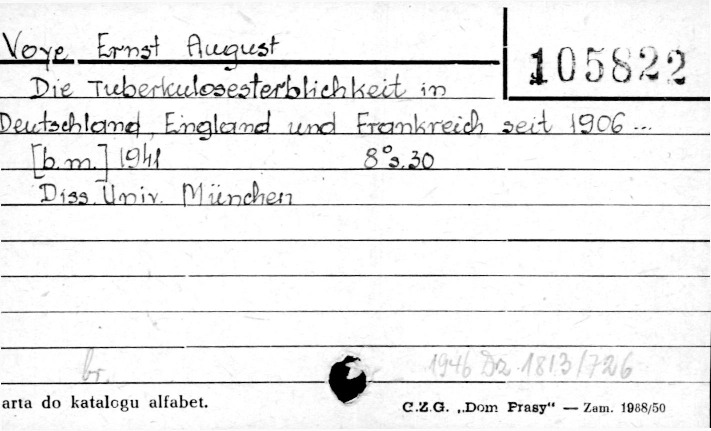 Voye Ernst August
105822
Die Tuberkulosesterblichkeit in
Deutschland, England und Frankreich seit 1906...
[b.m.] 1941 8° s. 30
Diss. Univ. München
br. 1946 Dz 1813/726
arta do katalogu alfabet. C.Z.G. „Dom Prasy" — Zam. 1988/50